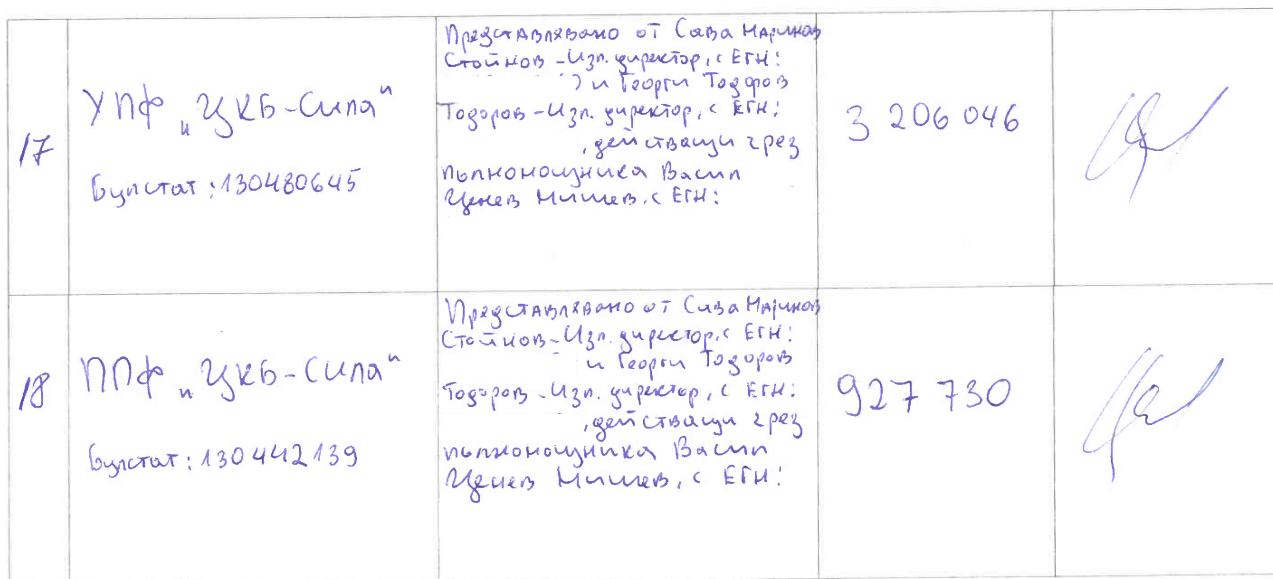 17
УПФ „ЦКБ-Сила“
Булстат: 130480645
Представлявано от Сава Маринов
Стойнов - Изп. директор, с ЕГН:
) и Георги Тодоров
Тодоров - Изп. директор, с ЕГН:
, действащи чрез
пълномощника Васил
Ценев Мишев, с ЕГН:
3 206 046
18
ППФ „ЦКБ-Сила“
Булстат: 130442139
Представлявано от Сава Маринов
Стойнов - Изп. директор, с ЕГН:
и Георги Тодоров
Тодоров - Изп. директор, с ЕГН:
, действащи чрез
пълномощника Васил
Ценев Мишев, с ЕГН:
927 730